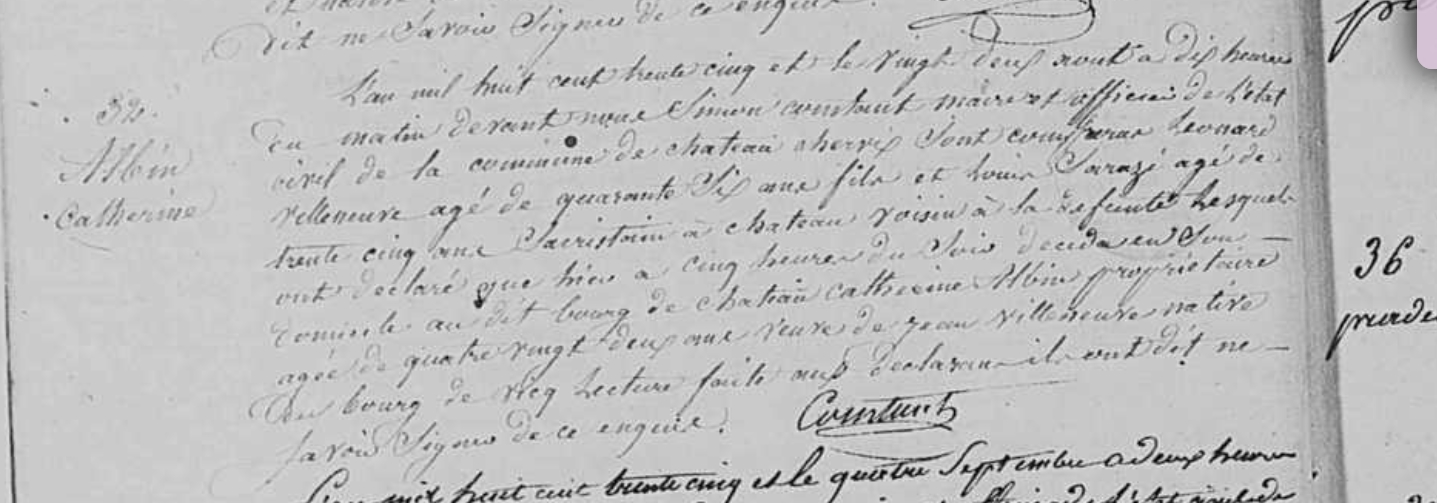 dit ne Savoir Signer de ce enquis.
L'an mil huit cent trente cinq et le vingt deux aout a dix heures
du matin devant nous Simon constant maire et officier de L'etat
32.
civil de la commune de chateau chervix Sont comparus Leonard
Albin
villeneuve agé de quarante Six ans fils et Louis Sarazi agé de
Catherine
trente cinq ans Sacristain a chateau voisin à la defunte Lesquels
ont declaré que hier a cinq heures du Soir deceda en Son
domicile au dit bourg de chateau catherine Albin propriétaire
agée de quatre vingt deux ans veuve de jean villeneuve native
du bourg de vicq Lecture faite aux declarans ils ont dit ne
Savoir Signer de ce enquis.
Constant
L'an mil huit cent trente cinq et le quatre Septembre a deux heures
36